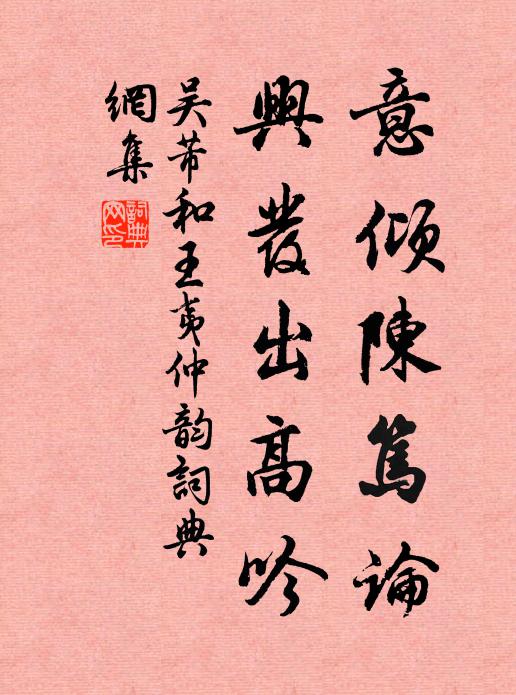 意傾陳篤論
興發出高吟
吴芾和王夷仲韵詞典
網集
詞典網印